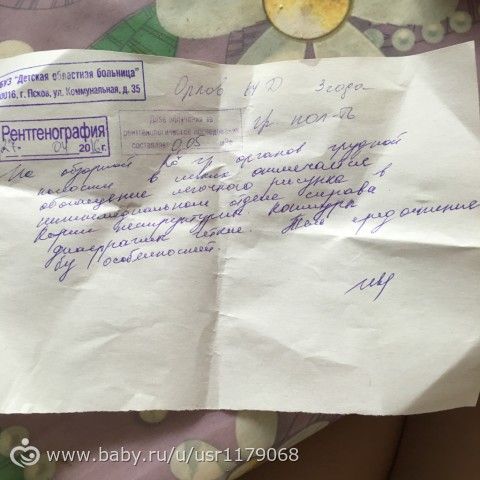 БУЗ "Детская областная больница"
0016, г. Псков, ул. Коммунальная, д. 35
Орлов 3 года
Рентгенография
27. 04 2016г.
Доза облучения за
рентгенологическое исследование
составляет 0,05
гр. пол-ть
На обзорной Rо гр органов грудной
полости в легких отмечается
обогащение легочного рисунка в
нижнемедиальном отделе справа
Корни структурны Контуры
диафрагмы четкие. Тень средостения
б/у особенностей.
www.baby.ru/u/usr1179068